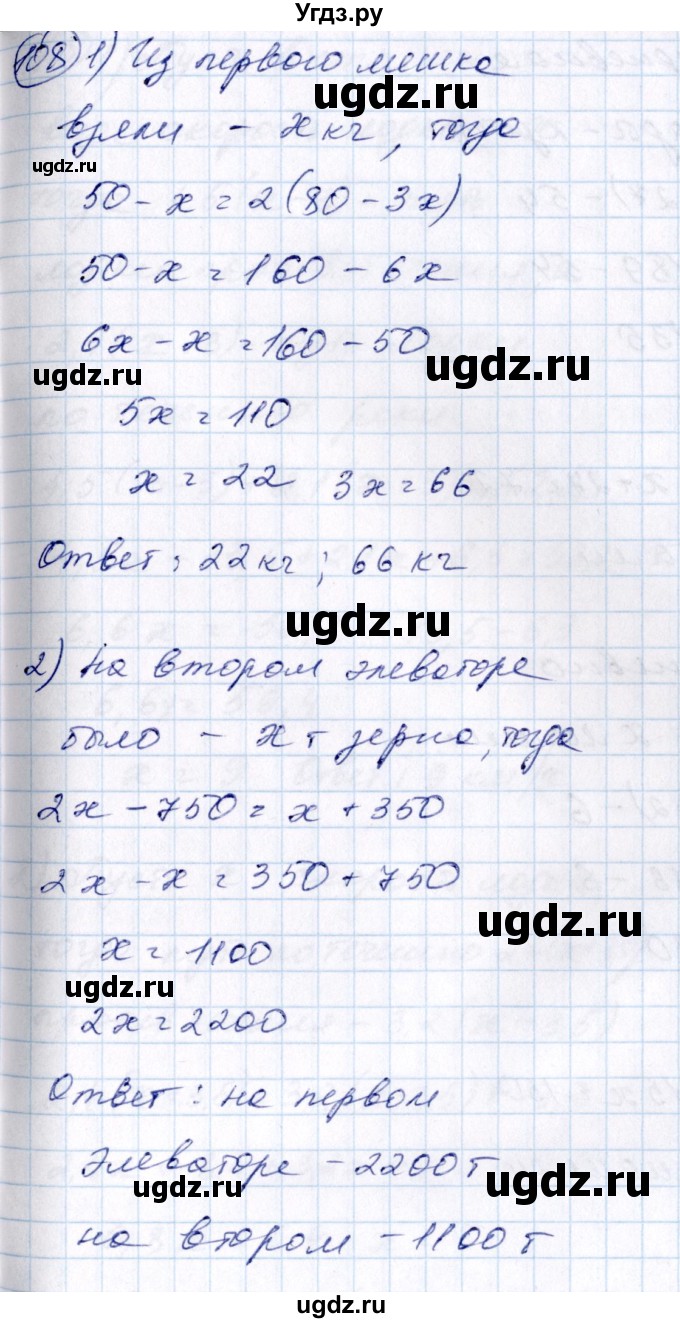 Угдз.ру
108 1) Из первого мешка
ugdz.ru
взяли - x кг, тогда
ugdz.ru
50 - x = 2(80 - 3x)
ugdz.ru
50 - x = 160 - 6x
6x - x = 160 - 50
ugdz.ru
ugdz.ru
5x = 110
x = 22 3x = 66
ugdz.ru
Ответ: 22 кг; 66 кг
ugdz.ru
2) на втором элеваторе
ugdz.ru
было - x т зерна, тогда
2x - 750 = x + 350
2x - x = 350 + 750
ugdz.ru
x = 1100
ugdz.ru
2x = 2200
Ответ: на первом
элеваторе - 2200 т
ugdz.ru
ugdz.ru
на втором - 1100 т
ugdz.ru